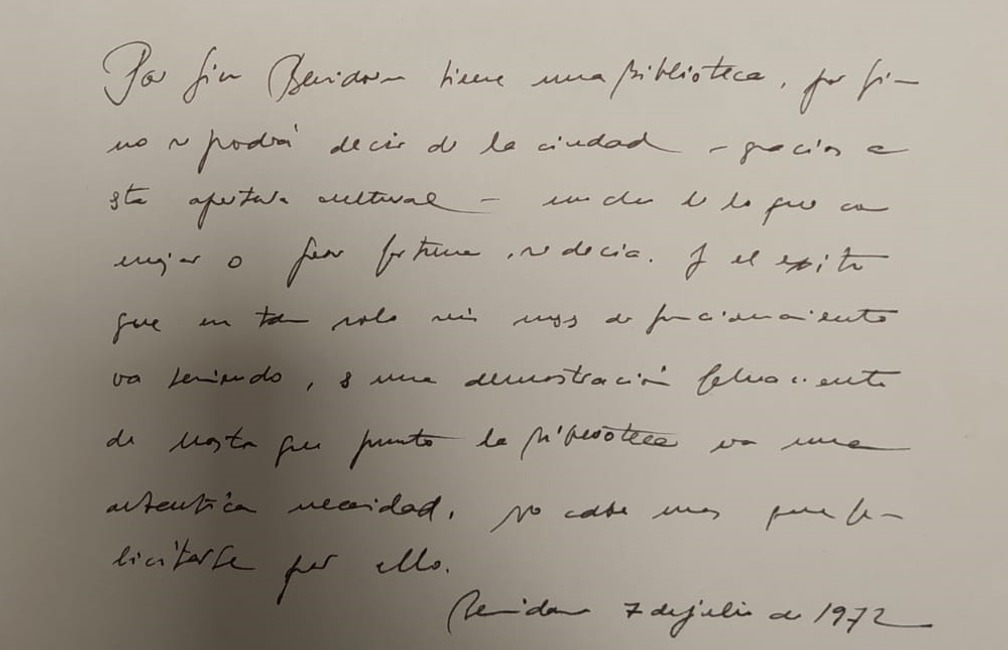 Por fin Benidorm tiene una biblioteca, por fin
no se podrá decir de la ciudad - gracias a
esta apertura cultural - mucho de lo que con
mejor o peor fortuna, se decía. Y el exito
que en tan solo seis meses de funcionamiento
va teniendo, es una demostración fehaciente
de hasta que punto la biblioteca era una
autentica necesidad. No cabe mas que fe-
licitarse por ello.
Benidorm 7 de julio de 1972